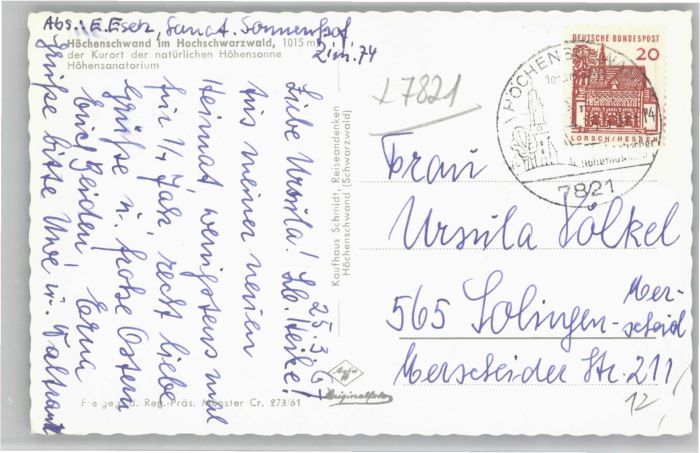 Abs.: E. Esez, Sanat. Sonnenhof
Zim. 74
Höchenschwand im Hochschwarzwald, 1015 m
der Kurort der natürlichen Höhensonne
Höhensanatorium
25.3.67
Liebe Ursula! Lb. Heike!
Aus meiner neuen
Heimat wenigstens mal
für 1/4 Jahr recht liebe
Grüße u. frohe Ostern
Euch Beiden Erna
Grüße bitte Uwe u. Waltraut
Kaufhaus Schmidt, Reiseandenken
Höchenschwand (Schwarzwald)
Agfa
Originalfoto
Freigeg. d. Reg.-Präs. Münster Cr. 273/61
+7821
DEUTSCHE BUNDESPOST
20
LORSCH/HESSEN
HÖCHENSCHWAND
7821
Frau
Ursula Völkel
565 Solingen-Mer-
scheid
Merscheider Str. 211
12